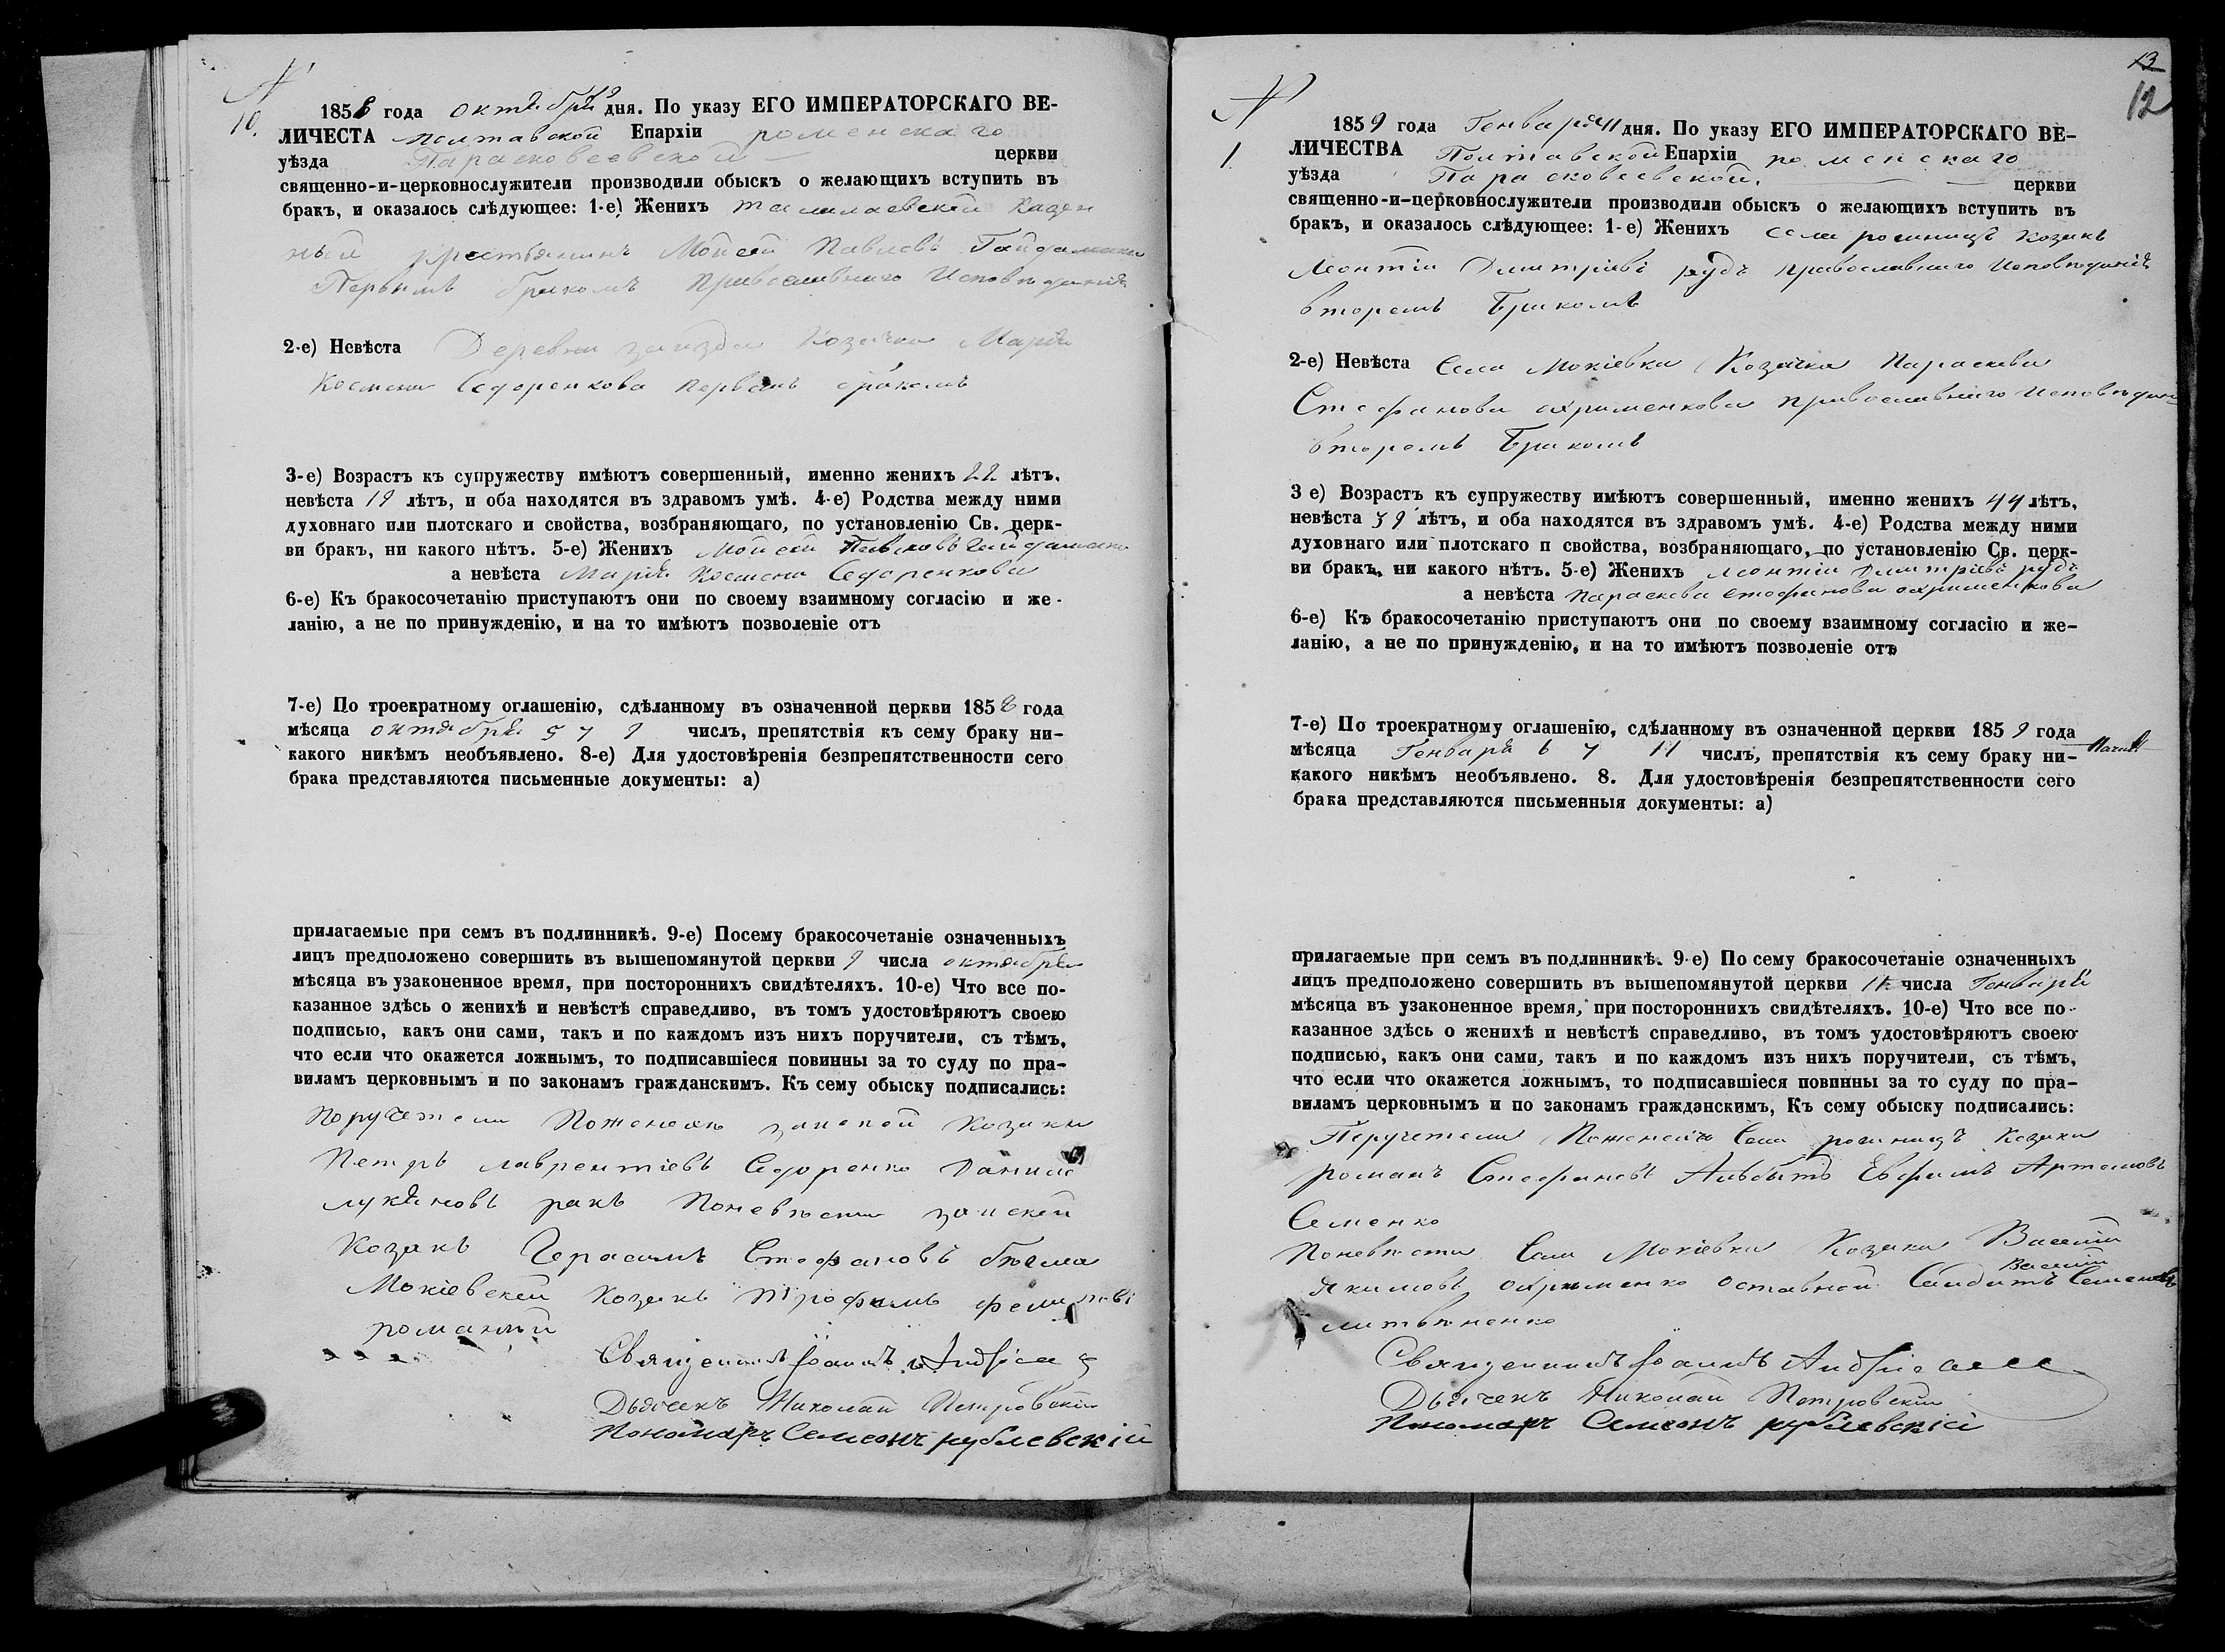 №
10.
1858 года октября 9 дня. По указу ЕГО ИМПЕРАТОРСКАГО ВЕ-
ЛИЧЕСТА Полтавской Епархіи роменскаго
уѣзда Парасковеевской церкви
священно-и-церковнослужители производили обыскъ о желающихъ вступить въ
бракъ, и оказалось слѣдующее: 1-е) Женихъ казен
ный крестьянинъ Мойсей Павловъ Гайдамака
Первымъ бракомъ Православнаго Исповѣданія
2-е) Невѣста Деревни козачка Марія
Космина Сидоренкова первымъ бракомъ
3-е) Возрастъ къ супружеству имѣютъ совершенный, именно женихъ 22 лѣтъ.
невѣста 19 лѣтъ, и оба находятся въ здравомъ умѣ. 4-е) Родства между ними
духовнаго или плотскаго и свойства, возбраняющаго, по установленію Св. церк-
ви бракъ, ни какого нѣтъ. 5-е) Женихъ Мойсей Павловъ Гайдамака
а невѣста Марія Космина Сидоренкова
6-е) Къ бракосочетанію приступаютъ они по своему взаимному согласію и же-
ланію, а не по принужденію, и на то имѣютъ позволеніе отъ
7-е) По троекратному оглашенію, сдѣланному въ означенной церкви 1858 года
мѣсяца октября 5 7 9 числъ, препятствія къ сему браку ни-
какого никѣмъ необъявлено. 8-е) Для удостовѣренія безпрепятственности сего
брака представляются письменные документы: а)
прилагаемые при семъ въ подлинникѣ. 9-е) Посему бракосочетаніе означенныхъ
лицъ предположено совершить въ вышепомянутой церкви 9 числа октября
мѣсяца въ узаконенное время, при постороннихъ свидѣтеляхъ. 10-е) Что все по-
казанное здѣсь о женихѣ и невѣстѣ справедливо, въ томъ удостовѣряютъ своею
подписью, какъ они сами, такъ и по каждомъ изъ нихъ поручители, съ тѣмъ,
что если что окажется ложнымъ, то подписавшіеся повинны за то суду по пра-
виламъ церковнымъ и по законамъ гражданскимъ. Къ сему обыску подписались:
Поручетели Поженихъ козаки
Петръ лаврентіевъ Сидоренко Данило
лукяновъ ракъ Поневѣсти
Козакъ Герасимъ Стефановъ
Мокіевскій козакъ Трофимъ
романый
Священникъ Іоаннъ
Дьячекъ Николай Петровскій
Пономаръ Семеонъ рублевскій
13
12
№
1.
1859 года Генваря 11 дня. По указу ЕГО ИМПЕРАТОРСКАГО ВЕ-
ЛИЧЕСТВА Полтавской Епархіи роменскаго
уѣзда Парасковеевской. церкви
священно-и-церковнослужители производили обыскъ о желающихъ вступить въ
бракъ, и оказалось слѣдующее: 1-е) Женихъ села козакъ
Леонтій Дмитріевъ рудъ православнаго исповѣданія
вторымъ бракомъ
2-е) Невѣста Села Мокіевки Козачка Параскева
Стефанова охрименкова православнаго исповѣдан
вторымъ бракомъ
3 е) Возрастъ къ супружеству имѣютъ совершенный, именно женихъ 44 лѣтъ,
невѣста 39 лѣтъ, и оба находятся въ здравомъ умѣ. 4-е) Родства между ними
духовнаго или плотскаго п свойства, возбраняющаго, по установленію Св. церк-
ви бракъ, ни какого нѣтъ. 5-е) Женихъ Леонтій Дмитріевъ рудъ
а невѣста Параскева стефанова охрименкова
6-е) Къ бракосочетанію приступаютъ они по своему взаимному согласію и же-
ланію, а не по принужденію, и на то имѣютъ позволеніе отъ
7-е) По троекратному оглашенію, сдѣланному въ означенной церкви 1859 года
мѣсяца Генваря 6 7 11 числъ, препятствія къ сему браку ни-
какого никѣмъ необъявлено. 8. Для удостовѣренія безпрепятственности сего
брака представляются письменныя документы: а)
прилагаемые при семъ въ подлинникѣ. 9-е) По сему бракосочетаніе означенныхъ
лицъ предположено совершить въ вышепомянутой церкви 11 числа Генваря
мѣсяца въ узаконенное время, при постороннихъ свидѣтеляхъ. 10-е) Что все по-
казанное здѣсь о женихѣ и невѣстѣ справедливо, въ томъ удостовѣряютъ своею
подписью, какъ они сами, такъ и по каждомъ изъ нихъ поручители, съ тѣмъ,
что если что окажется ложнымъ, то подписавшіеся повинны за то суду по пра-
виламъ церковнымъ и по законамъ гражданскимъ, Къ сему обыску подписались:
Поручетели Поженихъ Села козаки
романъ Стефановъ Евфимъ Артемовъ
Семенко
Поневѣсти Села Мокіевки Козаки Василій
Якимовъ охрименко оставной Салдатъ Василій Семеновъ
литвиненко
Священникъ Іоаннъ
Дьячекъ Николай Петровскій
Пономаръ Семеонъ рублевскій